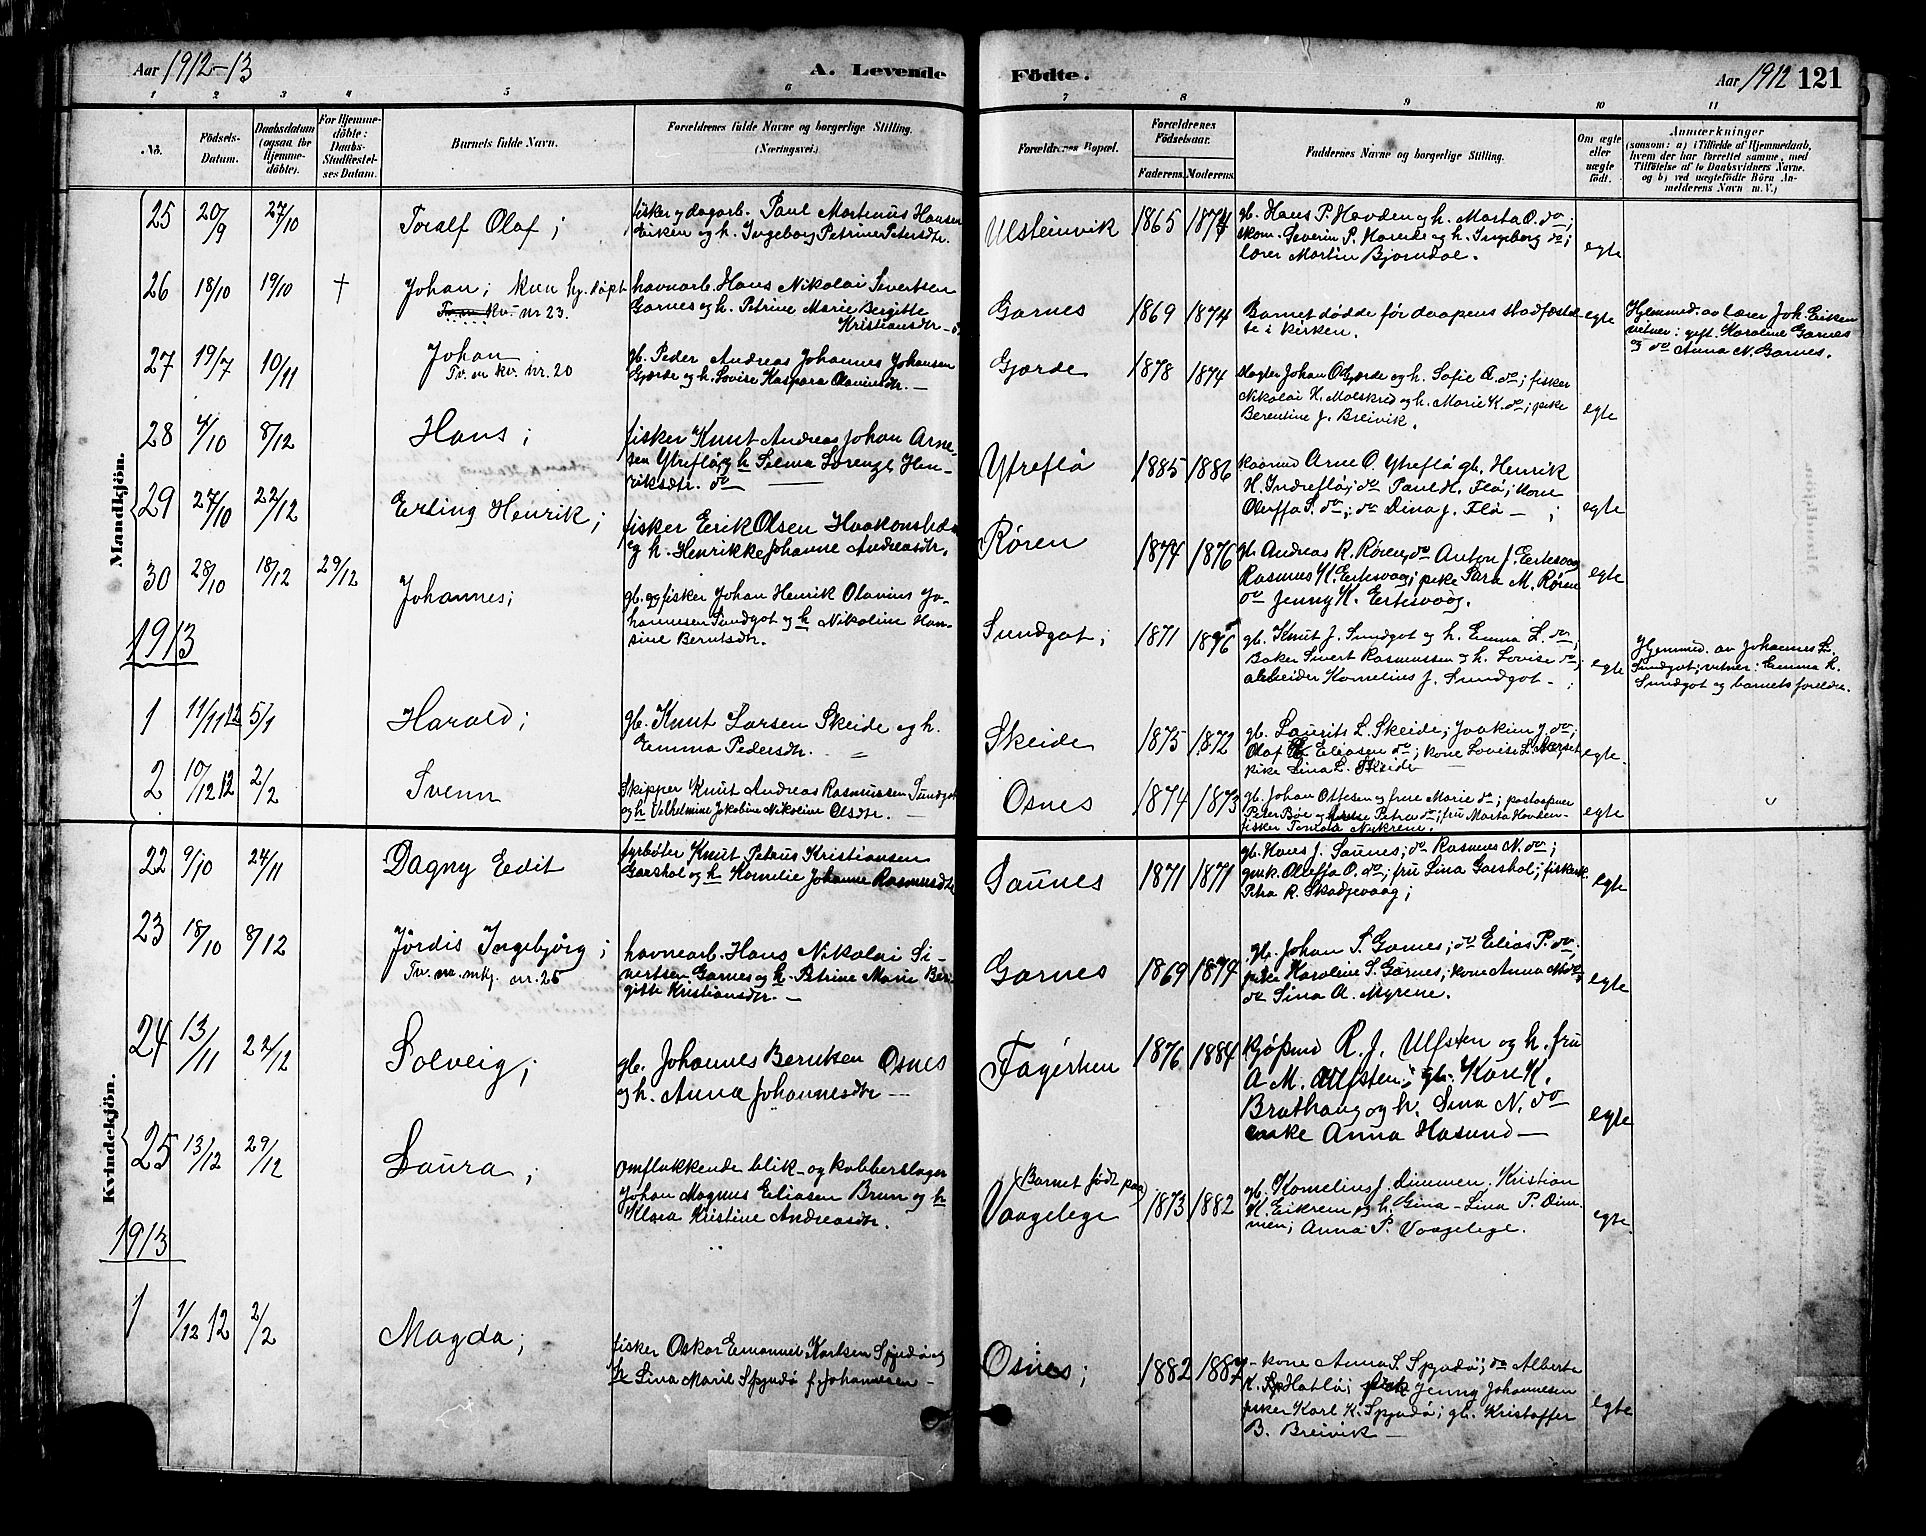 Aar 1912-13
A. Levende
Födte.
Aar 1912 121
1 2 3 4 5 6 7 8 9 10 11
No.
Födsels-
Datum.
Daabsdatum
(ogsaa for
Hjemme-
döbte).
For Hjemme-
döbte:
Daabs-
Stadfæstel-
ses Datum.
Barnets fulde Navn.
Forældrenes fulde Navne og borgerlige Stilling.
(Næringsvei.)
Forældrenes Bopæl.
Forældrenes
Födselsaar.
Faderens. Moderens.
Faddernes Navne og borgerlige Stilling.
Om ægte
eller
uægte
födt.
Anmærkninger
(saasom: a) i Tilfælde af Hjemmedaab,
hvem der har forrettet samme, med
Tilföielse af to Daabsvidners Navne,
og b) ved uægtefödte Börn An-
melderens Navn m. V.)
Mandkjön.
25 20/9 27/10 Toralf Olaf;
fisker og dagarb. Paul Martinus Hansen
Eiken og h. Ingeborg Petrine Petersdtr.
Ulsteinvik 1865 1874
gb. Hans P. Hovden og h. Marta O. do;
skom. Severin P. Harede og h. Ingeborg do;
lærer Martin Bjørndal.
egte
26 18/10 19/10 † Johan; kun hj. døpt
Tv. m kv. nr 23.
havnarb. Hans Nikolai Sivertsen
Garnes og h. Petrine Marie Bergitte
Kristiansdtr
Garnes 1869 1874
Barnet døde før daapens stadfæstel-
te i kirken.
egte
Hjemmed. av lærer Joh. Eiken
vitner: gift Karoline Garnes
og do Anna N. Garnes.
27 19/7 10/11 Johan
Tv. m kv. nr. 20
gb. Peder Andreas Johannes Johansen
Gjørde og h. Lovise Kaspara Olavsdtr. —
Gjerde 1878 1874
slagter Johan O. Gjerde og h. Sofie O. do; fisker
Nikolai H. Molskred og h. Marie K. do; pike
Berentine J. Breivik.
egte
28 4/10 8/12 Hans;
fisker Knut Andreas Johan Arne-
sen Ytreflø og h Selma Lorenze Hen-
riksdtr. do
Ytreflø 1885 1886
kaarmd Arne O. Ytreflø gb. Henrik
H. Indreflø; do Paul H. Flø; kone
Oluffa S. do; do Dina J. Flø — ;
egte
29 27/10 22/12 Erling Henrik;
fisker Erik Olsen Haakonsholm
og h. Henrikke Johanne Andreasdtr.
Røren 1874 1876
gb. Andreas R. Røren, do Anton J. Eertesvaag
Rasmus K. Eertesvaag; pike Sara M. Røren
do Jenny K. Ertesvaag.
egte
30 28/10 18/12 29/12 Johannes;
gb. og fisker Johan Henrik Olavius Jo-
hannesen Sundgot og h Nikoline Han-
sine Berntsdtr.
Sundgot; 1871 1876
gb. Knut J. Sundgot og h. Emma L. do
Baker Sivert Rasmussen og h. Lovise do
arbeider Kornelius J. Sundgot — ;
egte
Hjemmed. av Johannes L.
Sundgot; vitner: Emma L.
Sundgot og barnets foreldre.
1913
1 11/11 12 5/1 Harald;
gb. Knut Larsen Skeide og h.
Emma Pedersdtr. —
Skeide 1875 1872
gb. Laurits L. Skeide; Joakim J. do;
Olaf Eliasen do; kone Lovise L.
pike Sina L. Skeide
egte.
2 10/12 12 2/2 Svenn
Skipper Knut Andreas Rasmussen Sundgot
og h Vilhelmine Jakobine Nikoline Olsdtr. —
Osnes 1874 1873
gb. Johan Ottesen og frue Marie do; postaapner
Peter Bøe og Petra do; fru Marta Hovden
fisker Tomas Nykrene.
egte
Kvindekjön.
22 9/10 24/11 Dagny Edit
fyrbøter Knut Petrus Kristiansen
Garshol og h Kornelie Johanne Rasmusdtr
Saunes 1871 1871
gb. Hans J. Saunes; do Rasmus N. do;
gmk. Oluffa O. do; fru Sina Garshol; fiskersk.
Petra R. Skadjevaag;
egte
23 18/10 8/12 Jørdis Ingebjørg;
Tv. m. mkj. nr. 26
havnearb. Hans Nikolai Si-
vertsen Garnes og h. Petrine Marie Ber-
gitte Kristiansdtr. —
Garnes 1869 1874
gb. Johan S. Garnes; do Elias P. do;
pike Karoline S. Garnes; kone Anna N. do;
do Sina A. Myrene.
egte
24 13/11 22/12 Solveig;
gb. Johannes Berntsen Osnes
og h. Anna Johannesdtr —
Fagerheim 1876 1884
kjøpmd R. J. Ulfsten og h. fru
A M. Ulfsten; gb. Kare K.
Brathaug og h. Sina N. do
enke Anna Hasund —
egte
25 13/12 29/12 Laura;
omflakkende blik- og kobberslager
Johan Magnus Eliasen Brun og h
Klara Kristine Andreasdtr.
(Barnet født paa)
Vaagelege 1873 1882
gb. Kornelius J. Dimmen, Kristian
K. Eikrem og h. Gina-Lina P. Dim-
men; Anna P. Vaagelege.
egte.
1913
1 1/12 12 2/2 Magda;
fisker Oskar Emanuel Karlsen Spjudø og
h Sina Marie Spjudø f. Johannesen —
Osnes; 1882 1887
kone Anna S. Spjudø; do Alberta
K. Hatlø; Jenny Johannesen
pike Karl K. Spjudø; gb. Kristoffer
B. Breivik —
egte